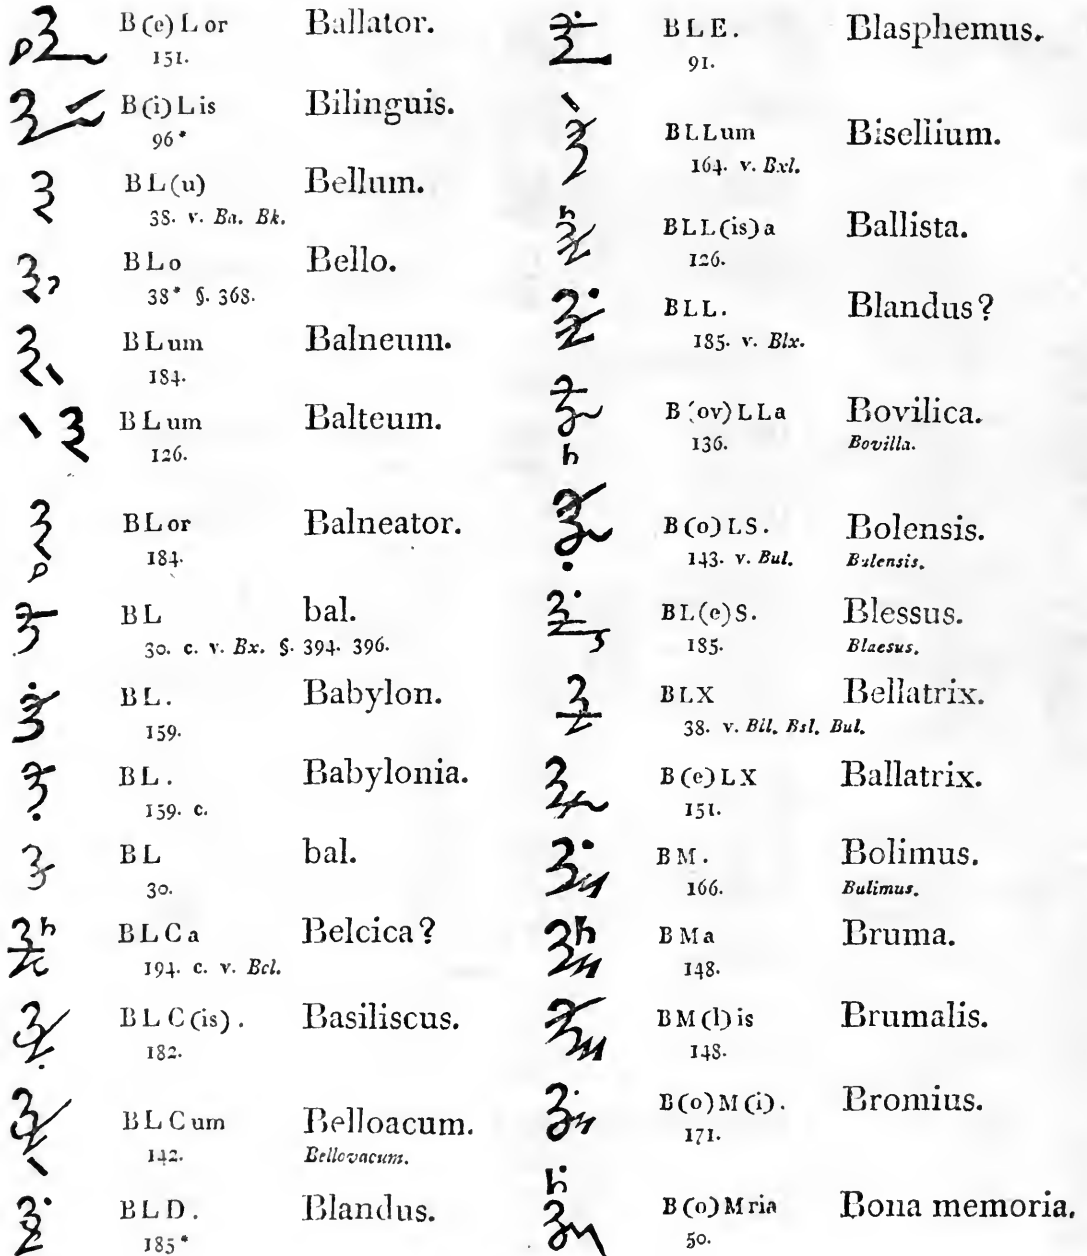 B(e)Lor Ballator.
151.
B(i)Lis Bilinguis.
96*
BL(u) Bellum.
38. v. Ba. Bk.
BLo Bello.
38* §. 368.
BLum Balneum.
184.
BLum Balteum.
126.
BLor Balneator.
184.
BL bal.
30. c. v. Bx. §. 394. 396.
BL. Babylon.
159.
BL. Babylonia.
159. c.
BL bal.
30.
BLCa Belcica?
194. c. v. Bcl.
BLC(is). Basiliscus.
182.
BLCum Belloacum.
142. Bellovacum.
BLD. Blandus.
185*
BLE. Blasphemus.
91.
BLLum Bisellium.
164. v. Bxl.
BLL(is)a Ballista.
126.
BLL. Blandus?
185. v. Blx.
B(ov)LLa Bovilica.
136. Bovilla.
B(o)LS. Bolensis.
143. v. Bul. Bulensis.
BL(e)S. Blessus.
185. Blaesus.
BLX Bellatrix.
38. v. Bil. Bsl. Bul.
B(e)LX Ballatrix.
151.
BM. Bolimus.
166. Bulimus.
BMa Bruma.
148.
BM(l)is Brumalis.
148.
B(o)M(i). Bromius.
171.
B(o)Mria Bona memoria.
50.